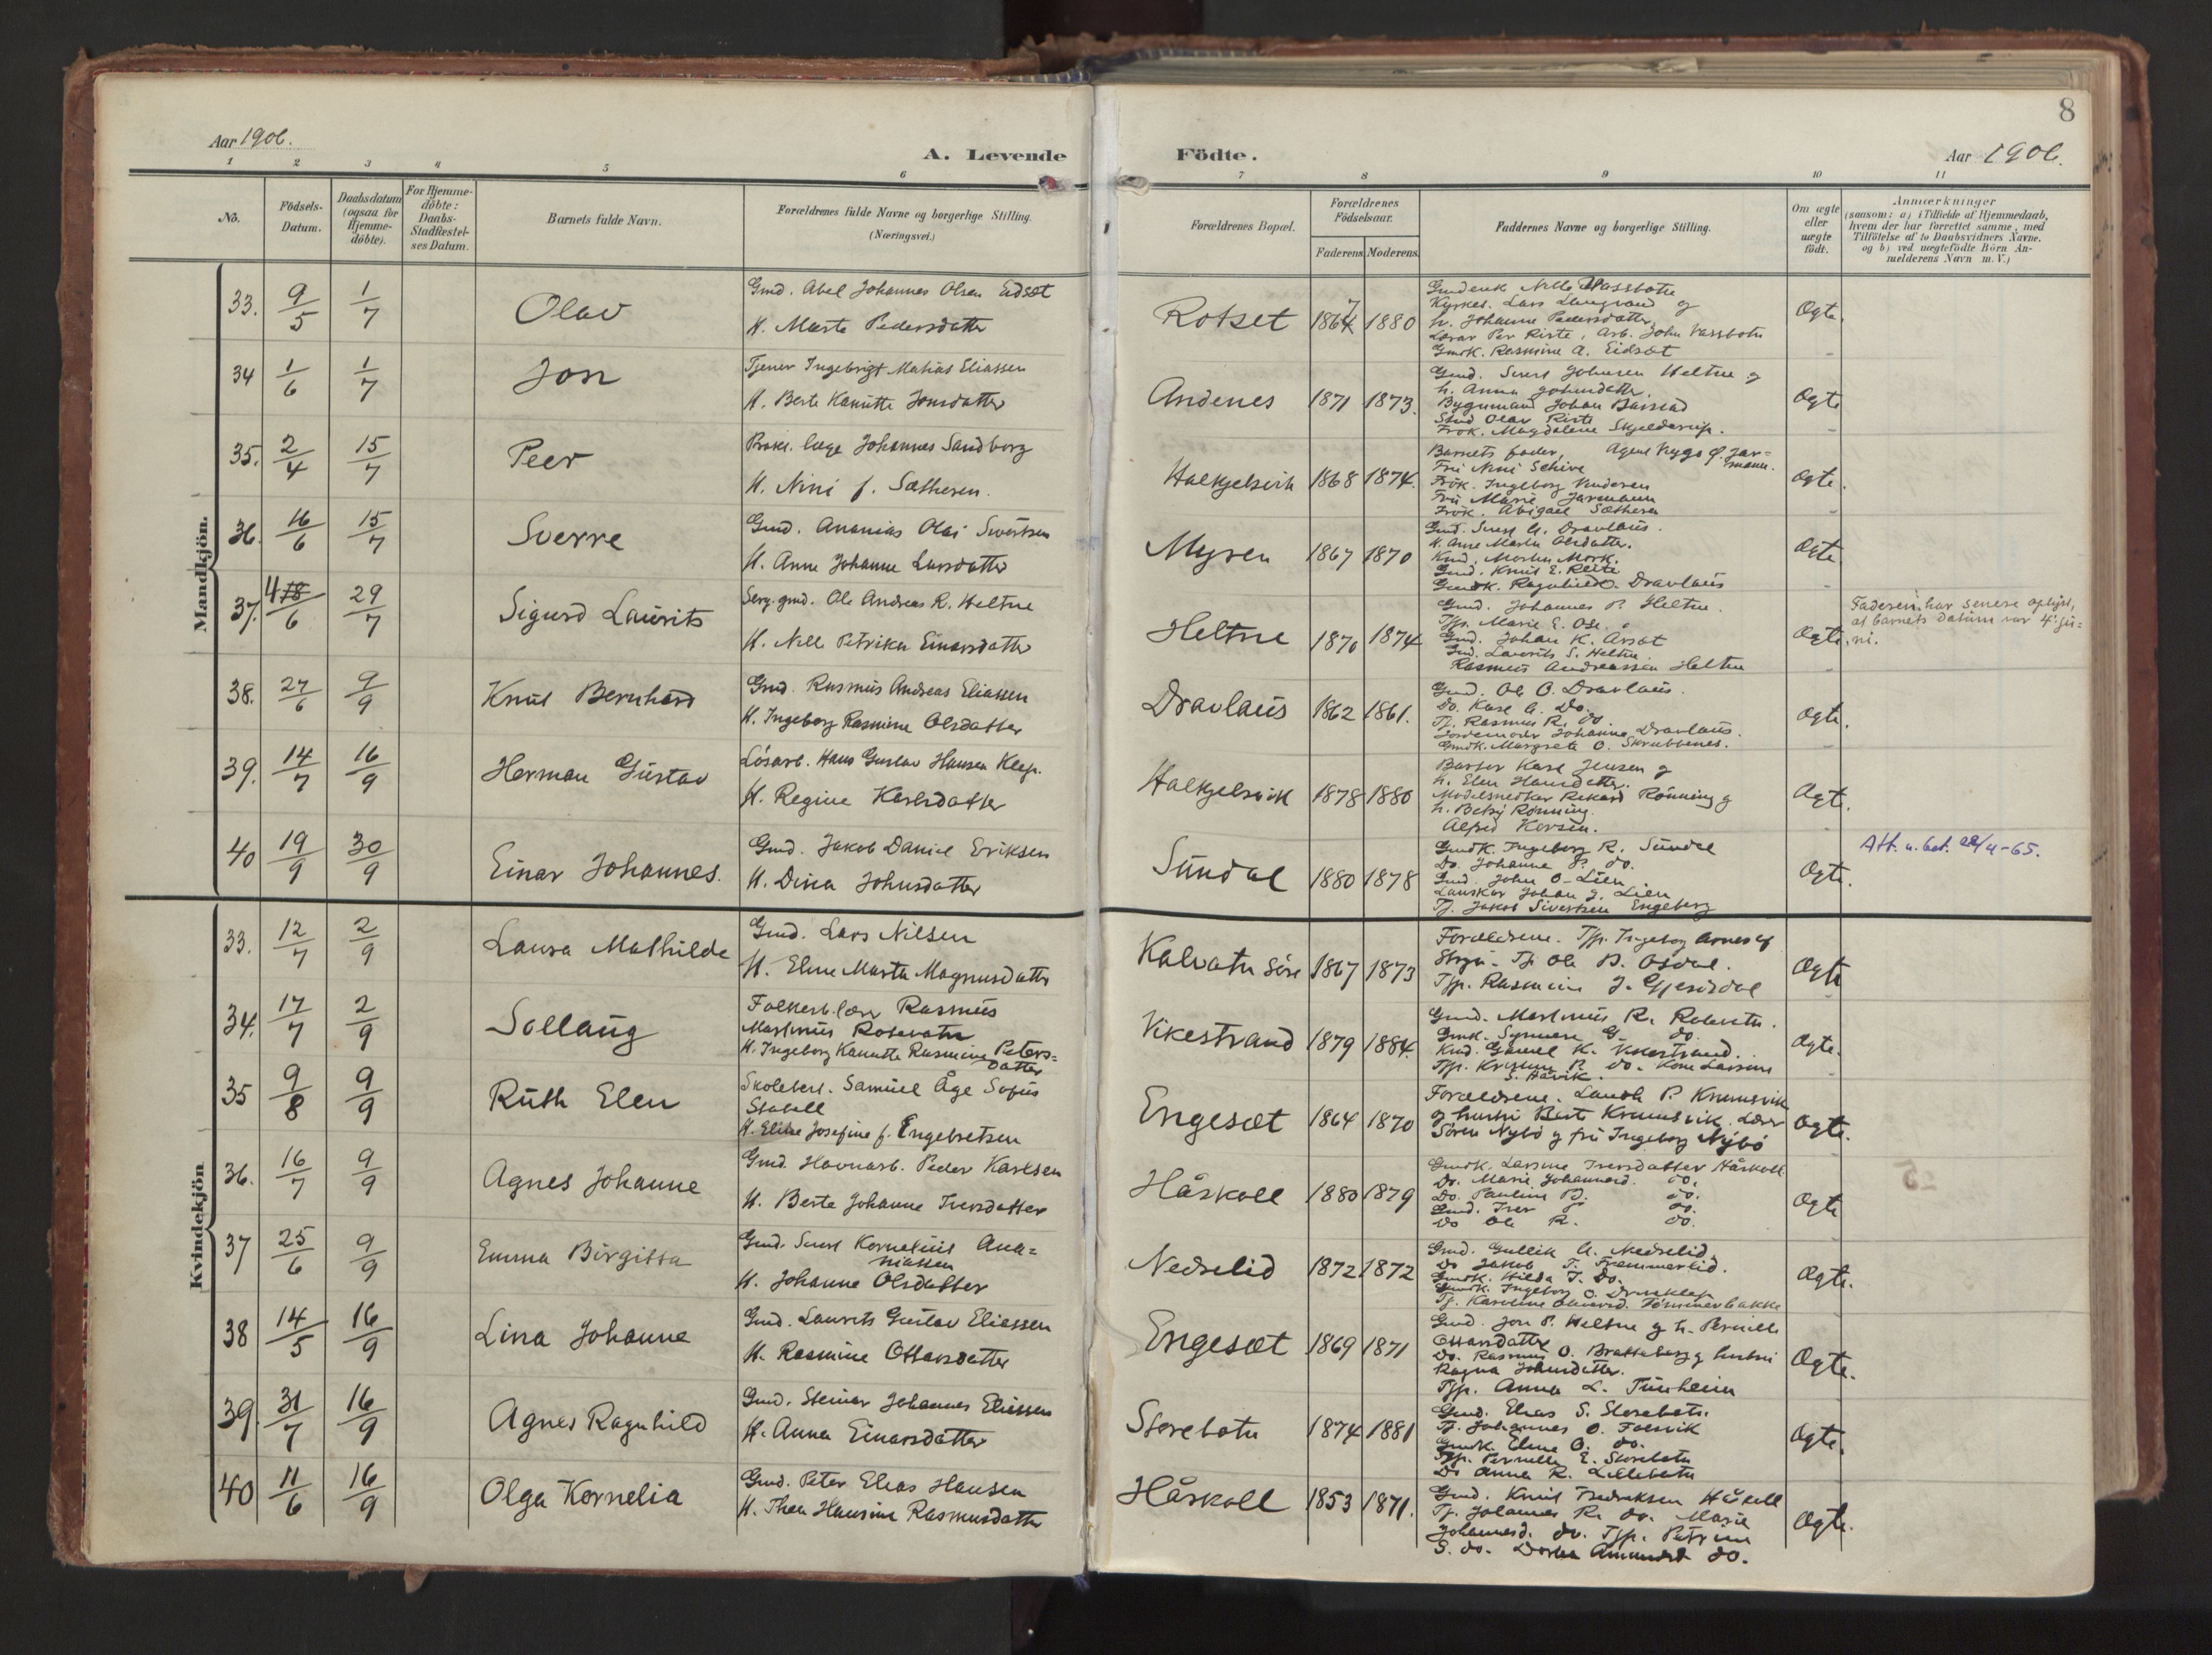 Aar 1906.
A. Levende Födte.
Aar 1906.
8
1 2 3 4 5 6 7 8 9 10 11
No.
Födsels-
Datum.
Daabsdatum
(ogsaa for
Hjemme-
döbte).
For Hjemme-
döbte:
Daabs-
Stadfæstel-
ses Datum.
Barnets fulde Navn.
Forældrenes fulde Navne og borgerlige Stilling.
(Næringsvei.)
Forældrenes Bopæl.
Forældrenes
Födselsaar.
Faderens Moderens
Faddernes Navne og borgerlige Stilling.
Om ægte
eller
uægte
födt.
Anmærkninger
(saasom: a) i Tilfælde af Hjemmedaab,
hvem der har forrettet samme, med
Tilföielse af to Daabsvidners Navne.
og b) ved uægtefödte Börn An-
melderens Navn m. V.)
Mandkjön.
33. 9/5 1/7 Olav
Gmd. Abel Johannes Olsen Eidset
H. Marte Pedersdatter
Rotset 1864 7 1880
Lars Langvand og
h. Johanne Pedersdatter
Lærar Per Riste, Arb. John Vassbotn
Gmdk. Rasmine A. Eidset
Ægte.
34 1/6 1/7 Jon
Tjener Ingebrigt Matias Eliassen
H. Berte Kanutte Jonsdatter
Andenes 1871 1873.
Gmd. Sivert Johnsen Heltne og
h. Anna Johnsdatter
Bygmand Johan Barstad
Stud Olav Riste
Frøk. Magdalene Skjelderup.
Ægte
35. 2/4 15/7 Peer
Praks. læge Johannes Sandborg
H. Nini f. Sæthern.
Halkjelsvik 1868 1874.
Barnets fader, Agent Hygo f. Jar=
mann.
Fru Nini Schive
Frøk. Ingeborg
Fru Marie Jarmann
Frøk. Abigael Sæthern
Ægte.
36. 16/6 15/7 Sverre
Gmd. Ananias Olai Sivertsen
H. Anne Johanne Larsdatter
Myren 1867 1870
Gmd. Sivert A. Dravlaus.
H. Anne Marta Olsdatter.
Kmd. Morten Mork.
Gmd. Knut E. Reite
Gmdk. Ragnhild O. Dravlaus
Ægte
37. 4 18/6 29/7 Sigurd Laurits
Serg. gmd. Ole Andreas R. Heltne
H. Nille Petrika Einarsdatter
Heltne 1870 1874
Gmd. Johannes P. Heltne.
Tjp. Marie E. Ose.
Gmd. Johan K. Årset
Gmd. Laurits S. Heltne
Rasmus Andreassen Heltne
Ægte.
Faderen har senere oplyst,
at barnets datum var 4. ju=
ni.
38. 27/6 9/9 Knut Bernhard
Gmd. Rasmus Andreas Eliassen
H. Ingeborg Rasmine Olsdatter
Dravlaus 1862 1861.
Gmd. Ole O. Dravlaus.
Do. Karl A. Do.
Tj. Rasmus R. do.
Jordemoder Johanne Dravlaus.
Gmdk. Margrete O. Skrubbenes.
Ægte.
39. 14/7 16/9 Herman Gustav
Løsarb. Hans Gustav Hansen Klep.
H. Regine Karlsdatter
Halkjelsvik 1878 1880
Karl Jensen og
h. Elen Hansdatter.
Møbelsnedker Rikard Rønning og
h. Betsy Rønning.
Alfred
Ægte.
40 19/9 30/9 Einar Johannes.
Gmd. Jakob Daniel Eriksen
H. Dina Johnsdatter
Sundal 1880 1878
Gmdk. Ingeborg R. Sundal
Do. Johanne P. do.
Gmd. John O. Lien
Johan J. Lien
Tj. Jakob Sivertsen Engeberg
Ægte.
Att. u. bet. 22/4-65.
Kvindekjön
33. 12/7 2/9 Laura Mathilde
Gmd. Lars Nilsen
H. Eline Marta Magnusdatter
Kalvatn søre 1867 1873
Forældrene. Tjp. Ingeborg
Tj. Ole B. Osdal.
Tjp. Rasmine J. Gjerdsdal
Ægte
34. 17/7 2/9 Sollaug
Folkesk.lær Rasmus
Martinus Rotevatn
H. Ingeborg Kanutte Rasmine Peters=
datter
Vikestrand 1879 1884.
Gmd. Martinus R. Rotevatn.
Gmdk. Synnøve G. do.
Kmd. Gamel K. Vikestrand.
S. Håvik.
Ægte.
35 9/8 9/9 Ruth Elen
Skolebest. Samuel Åge Sofus
Staball
H. Elise Josefine f. Engebretsen
Engeset 1864 1870
Forældrene. Landh. P. Krumsvik
og hustru Berit Krumsvik. Lærer
Søren Nybø og fru Ingeborg Nybø
Ægte.
36. 16/7 9/9 Agnes Johanne
Gmd. Havnarb. Peder Karlsen
H. Berte Johanne Iversdatter
Håskoll 1880 1879
Gmdk. Larsine Iversdatter Håskoll
Do. Marie Johannesd. do.
Do. Pauline P. do.
Gmd. Iver P. do.
Do Ole R. do.
Ægte
37 25/6 9/9 Emma Birgitta
Gmd. Sivert Kornelius Ana=
niassen
H. Johanne Olsdatter
Nedrelid 1872 1872
Gmd. Gullik A. Nedrelid.
Do Jakob T. Fremmerlid.
Gmdk. Hilda J. Do.
Gmdk. Ingeborg O.
Tj. Karoline
Ægte.
38 14/5 16/9 Lina Johanne
Gmd. Laurits Gustav Eliassen
H. Rasmine Ottarsdatter
Engeset 1869 1871
Gmd. Jon P. Heltne og h. Pernille
Ottarsdatter
Do. Rasmus O. Brattaberg og hustru
Ragna Johnsdatter.
Tjp. Anna L. Tunheim
Ægte.
39. 31/7 16/9 Agnes Ragnhild
Gmd. Steinar Johannes Eliassen
H. Anna Einarsdatter
Storebotn 1874 1881
Gmd. Elias S. Storebotn.
Tj. Johannes O. Folsvik
Gmdk. Eline O. do.
Tjp. Pernille E. Storebotn
Do Anna R. Lillebotn
Ægte.
40 11/6 16/9 Olga Kornelia
Gmd. Peter Elias Hansen
H. Thea Hansine Rasmusdatter
Håskoll 1853 1871.
Gmd. Knut Fredriksen Håskoll
Tj. Johannes R. do. Marie
Johannesd. do. Tjp. Petrine
S. do. Dortea Amundsd do.
Ægte.